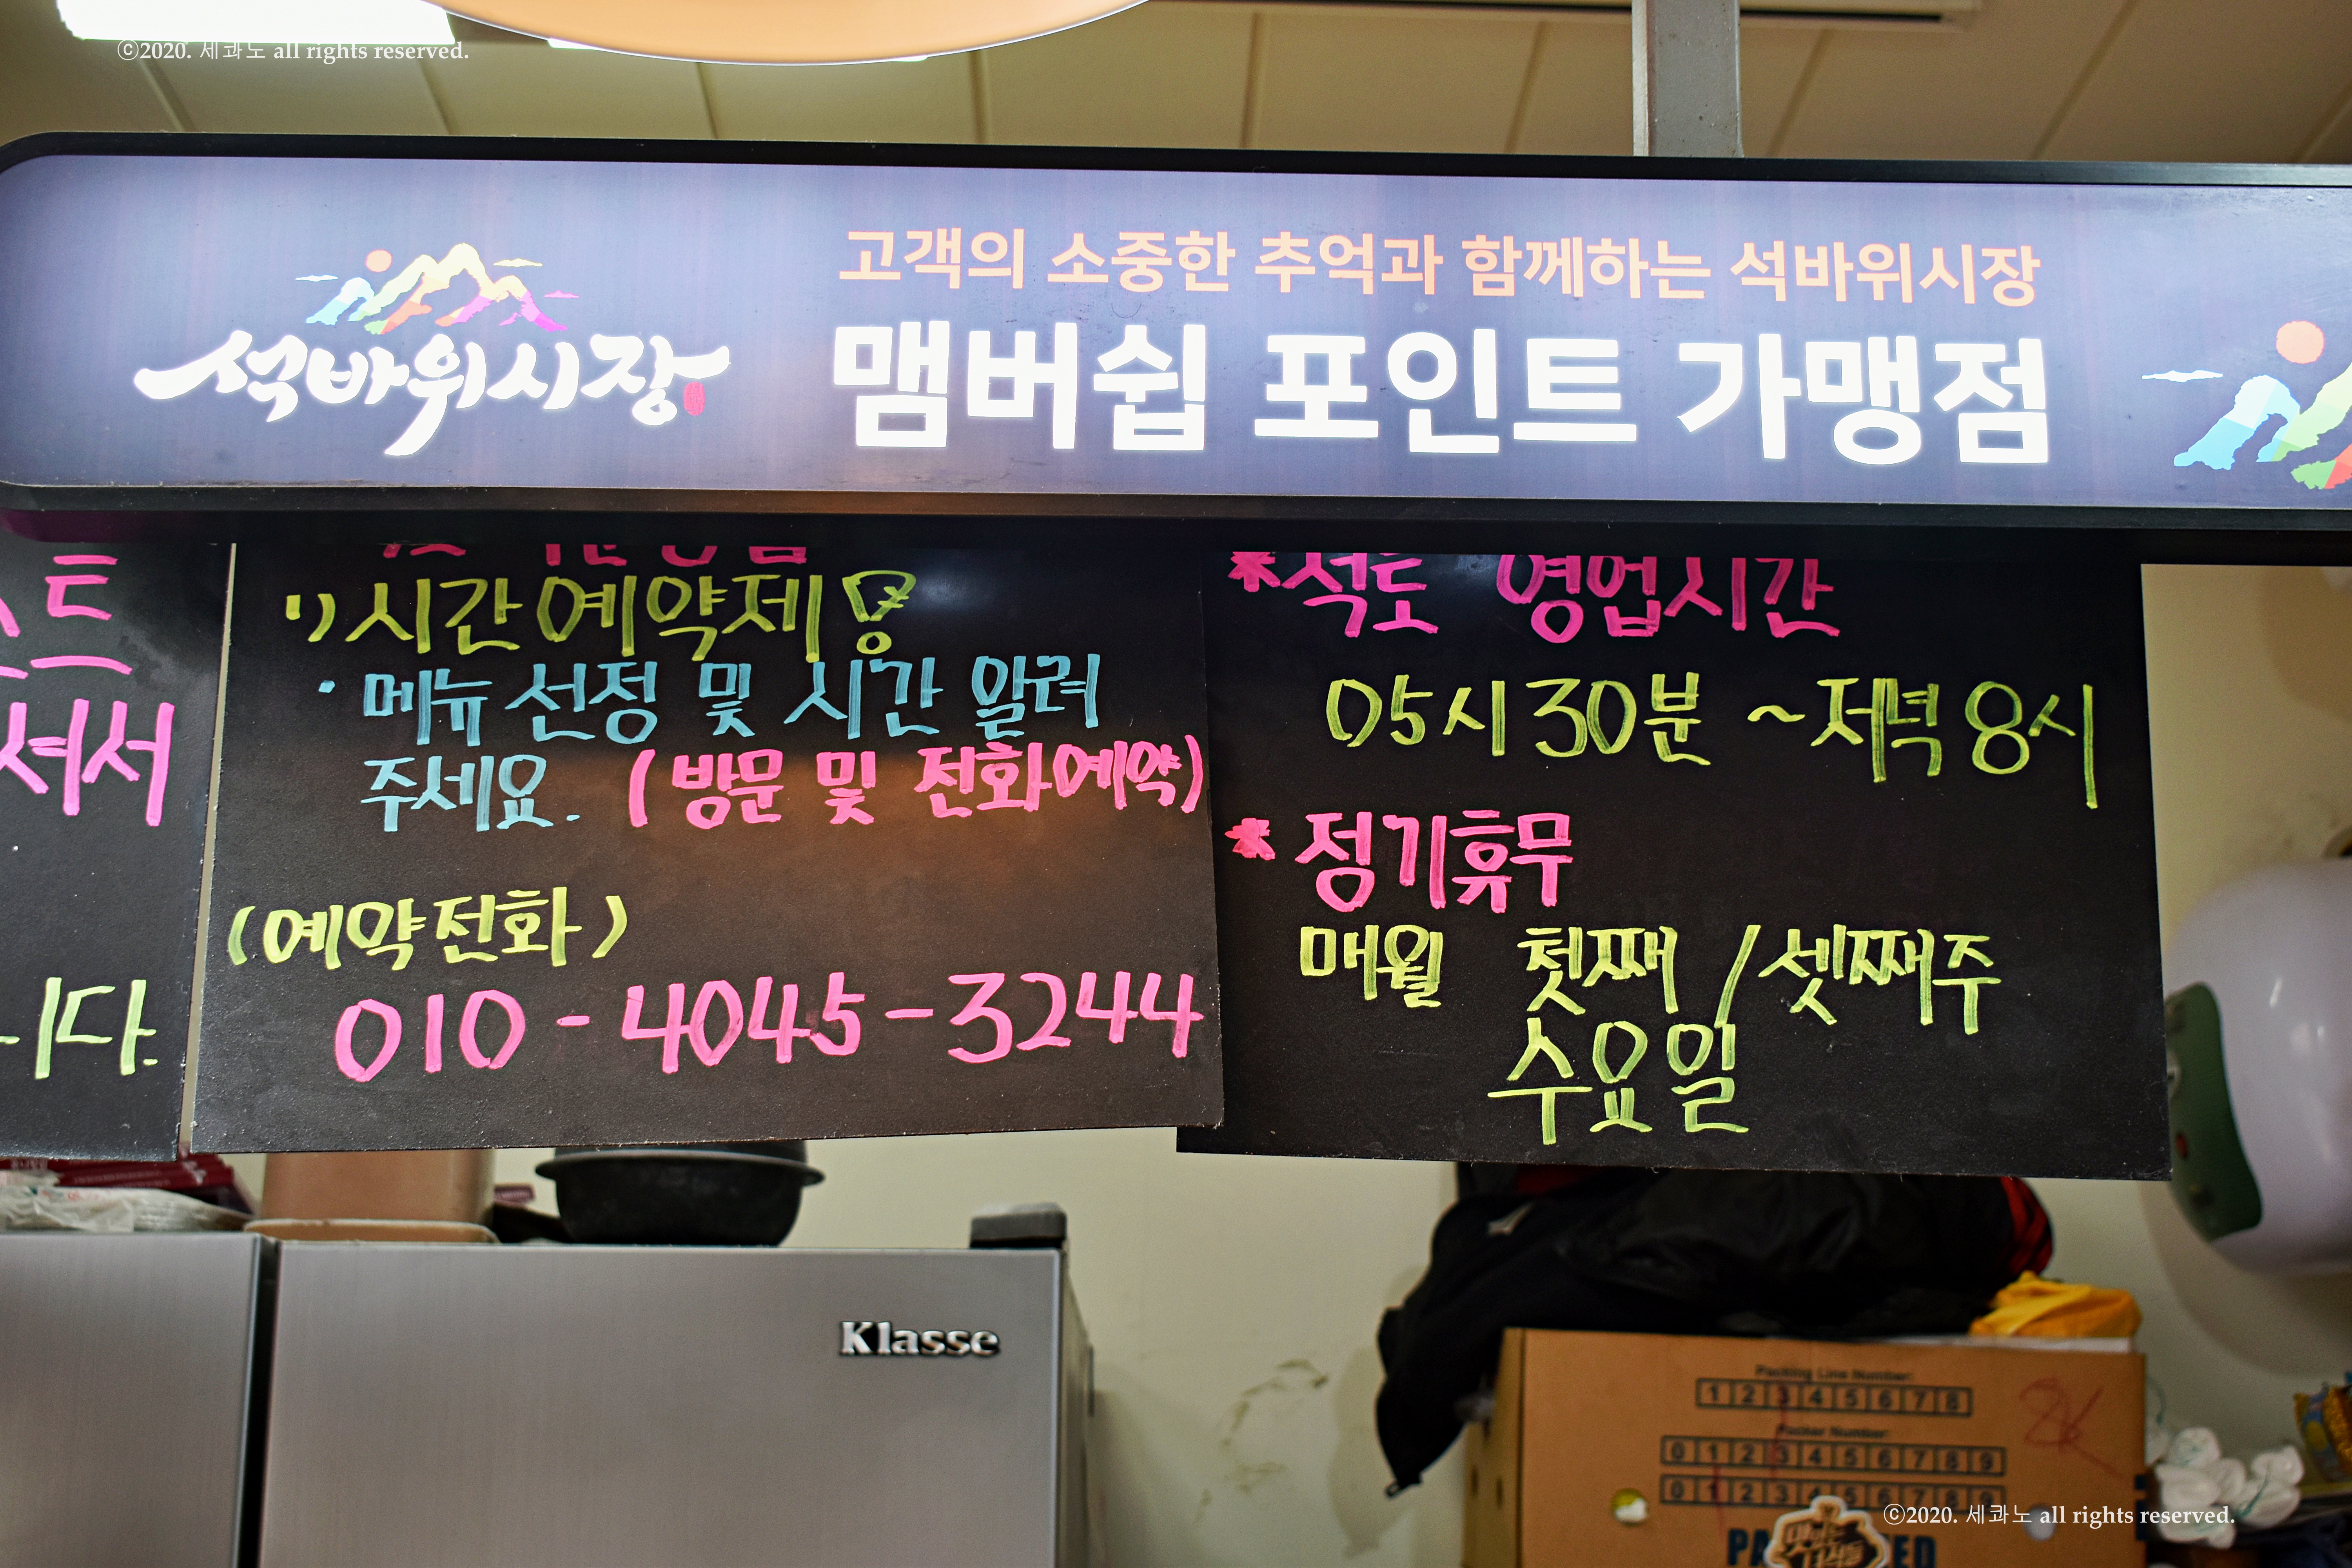 ⓒ2020. 세콰노 all rights reserved.
석바위시장
고객의 소중한 추억과 함께하는 석바위시장
맴버쉽 포인트 가맹점
스트
셔서
니다.
1) 시간예약제!
· 메뉴 선정 및 시간 알려
주세요. (방문 및 전화예약)
(예약전화)
010-4045-3244
* 석도 영업시간
05시 30분 ~ 저녁 8시
* 정기휴무
매월 첫째 / 셋째주
수요일
Klasse
Packing Line Number:
1 2 3 4 5 6 7 8
Packer Number:
0 1 2 3 4 5 6 7 8 9
0 1 2 3 4 5 6 7 8 9
2K
ⓒ2020. 세콰노 all rights reserved.